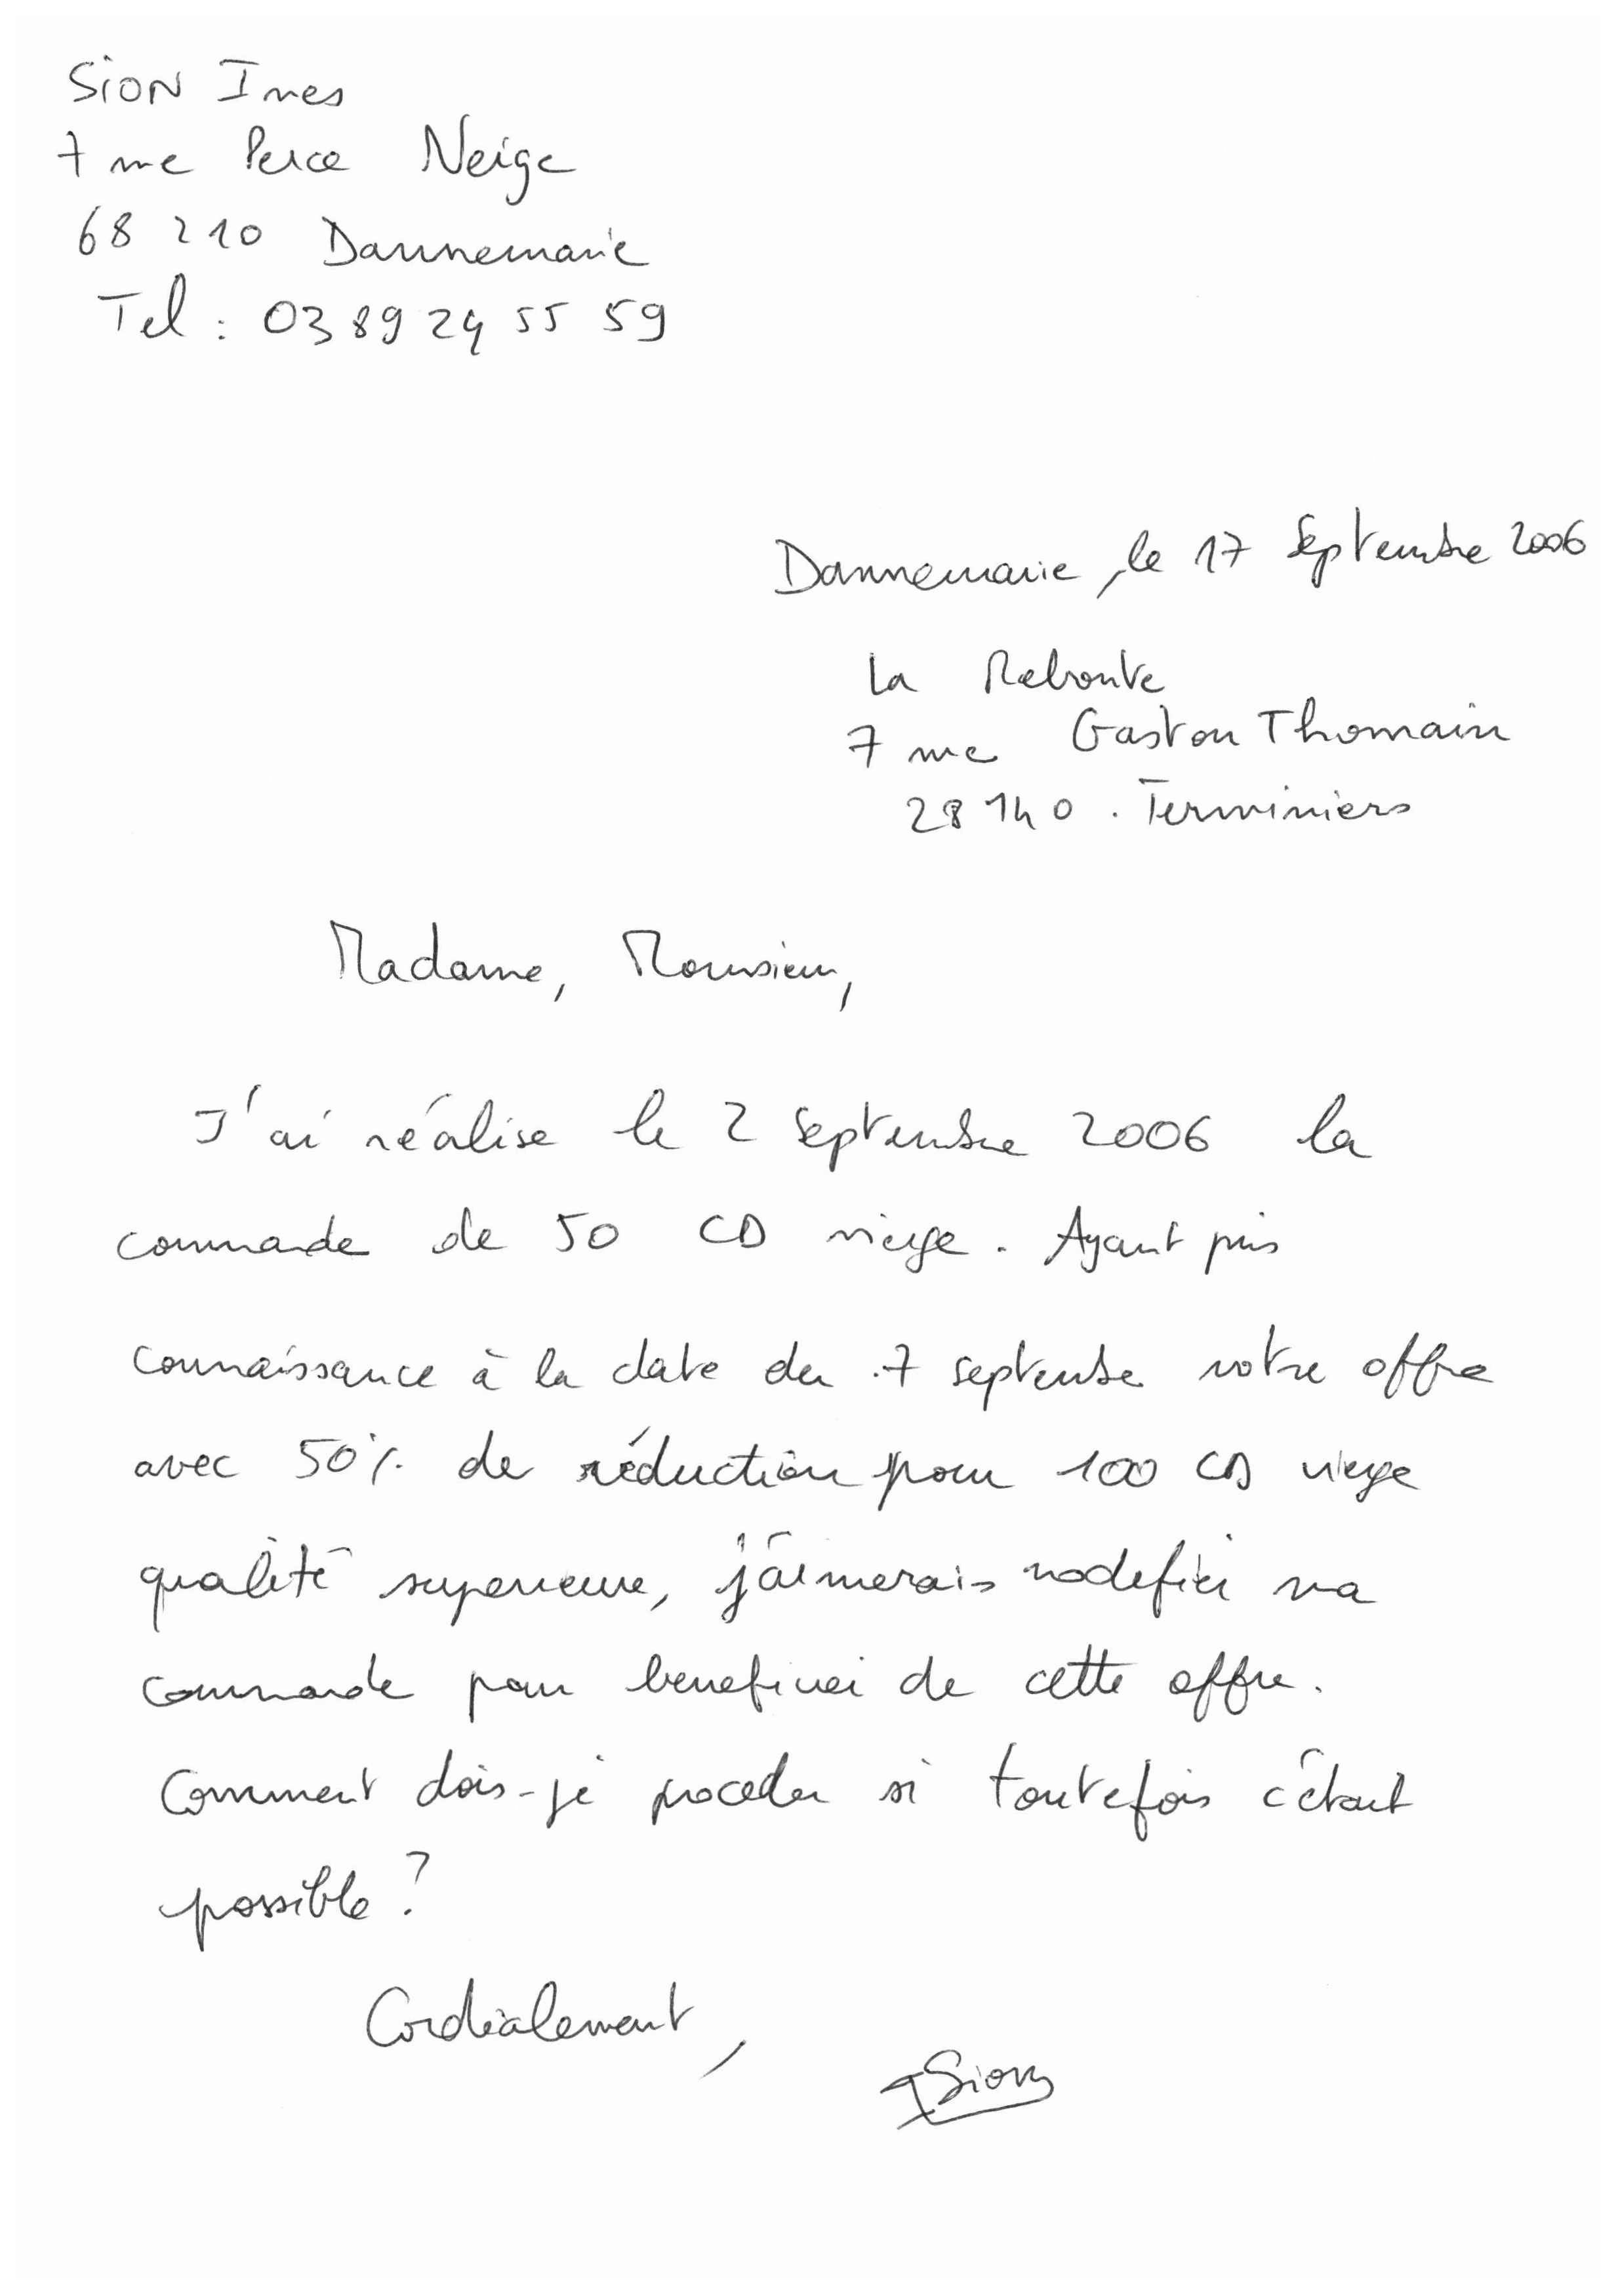 SION Ines
7 rue Perce Neige
68 210 Dannemarie
Tel : 03 89 24 55 59
Dannemarie, le 17 Septembre 2006
La Reboute
7 rue Gaston Thomain
28140. Terminiers
Madame, Monsieur,
J'ai réalise le 2 septembre 2006 la
commande de 50 CD vierge. Ayant pris
connaissance à la date du 7 septembre votre offre
avec 50% de réduction pour 100 CD vierge
qualité superieure, j'aimerais modifier ma
commande pour beneficier de cette offre.
Comment dois-je proceder si toutefois c'était
possible ?
Cordialement,
ISion